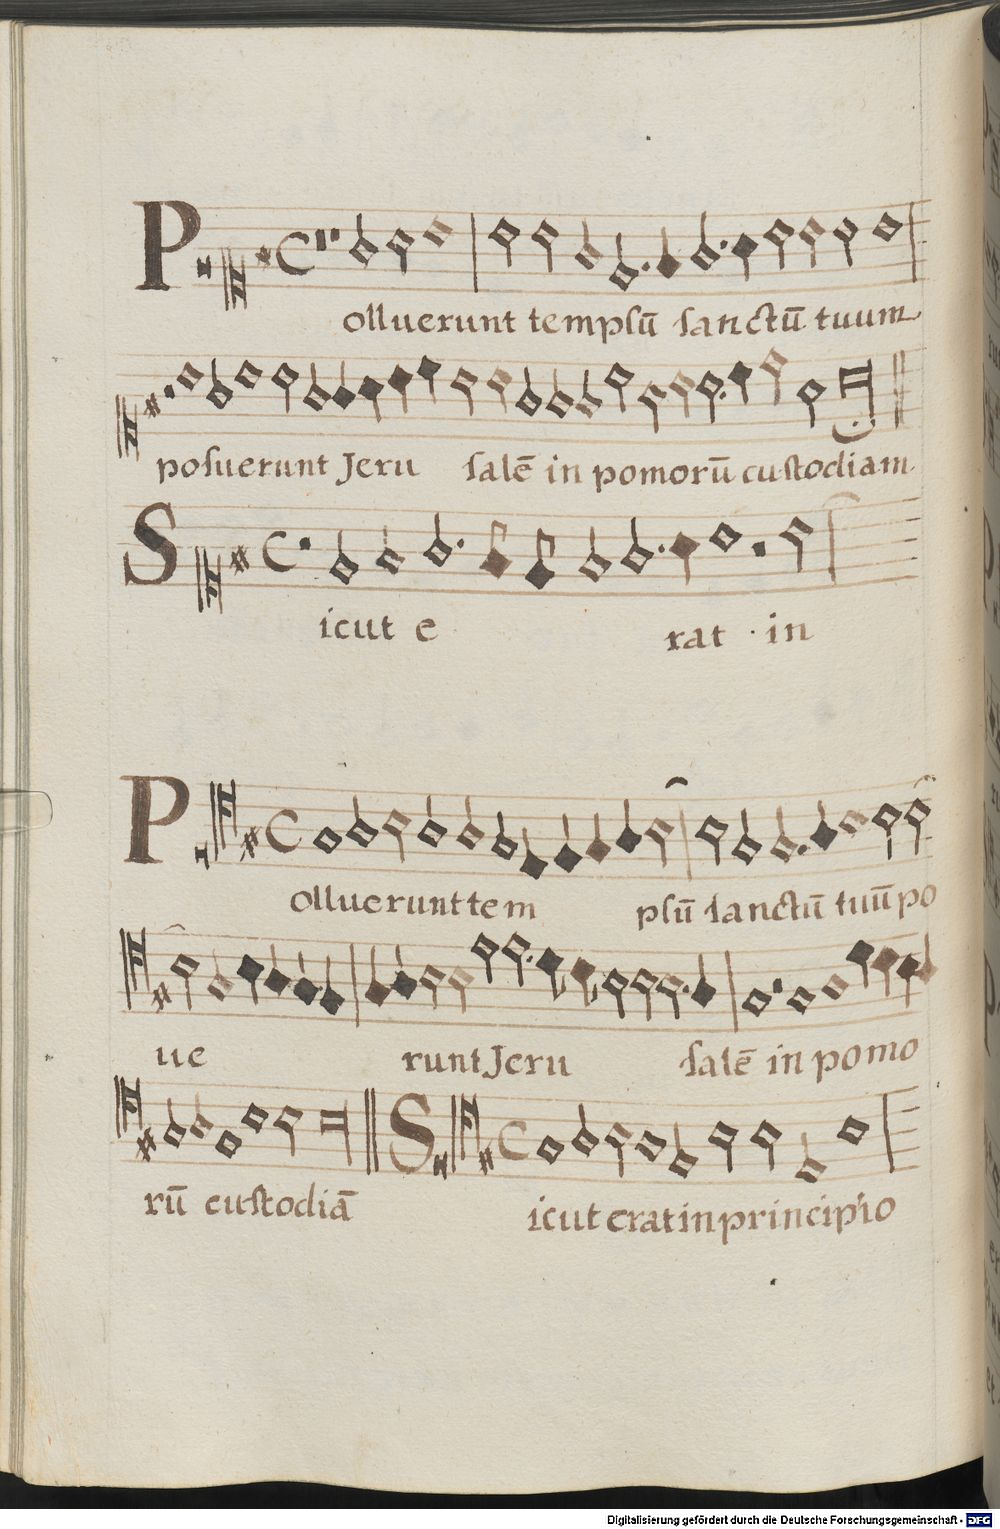 Polluerunt templū sanctū tuum
posuerunt Jeru salē in pomorū custodiam
Sicut e rat in
Polluerunt tem plū sanctū tuū po
ue runt Jeru salē in pomo
rū custodiā Sicut erat in principio
Digitalisierung gefördert durch die Deutsche Forschungsgemeinschaft - DFG